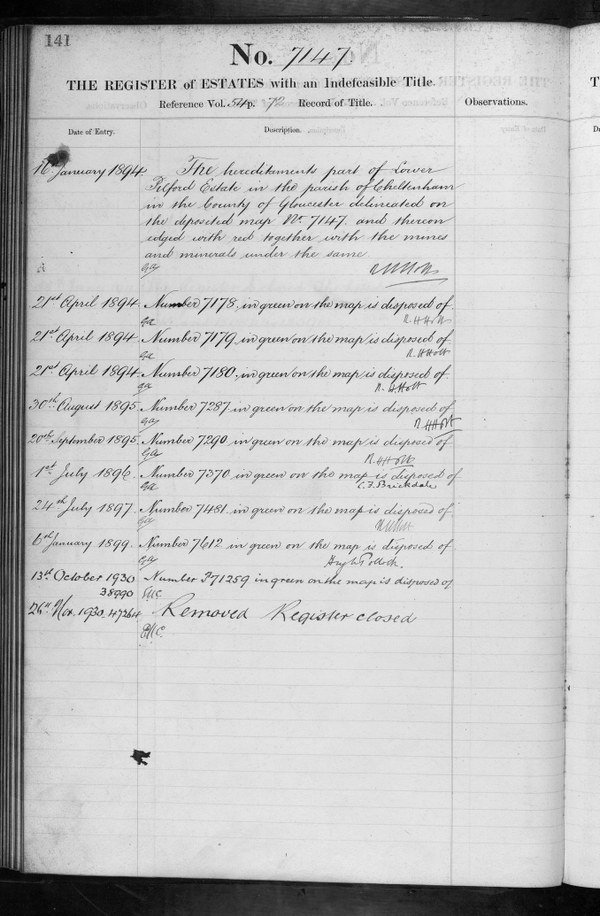 141
No. 7147
THE REGISTER of ESTATES with an Indefeasible Title.
Reference Vol. 54 p. 72 Record of Title.
Observations.
Date of Entry.
Description.
16 January 1894
The hereditaments part of Lower
Pilford Estate in the parish of Cheltenham
in the County of Gloucester delineated on
the deposited map No. 7147. and thereon
edged with red together with the mines
and minerals under the same
21st April 1894. Number 7178. in green on the map is disposed of
R.H.Holt
21st April 1894. Number 7179. in green on the map is disposed of
R.H.Holt
21st April 1894. Number 7180. in green on the map is disposed of
R.H.Holt
30th August 1895. Number 7287 in green on the map is disposed of
R.H.Holt
20th September 1895. Number 7290 in green on the map is disposed of
R.H.Holt
1st July 1896. Number 7370 in green on the map is disposed of
C.F.Brickdale
24th July 1897. Number 7481. in green on the map is disposed of
6th January 1899. Number 7612 in green on the map is disposed of
Hugh Pollock.
13th October 1930 Number P71259 in green on the map is disposed of
38990
26th Nov. 1930. 47264 Removed Register closed